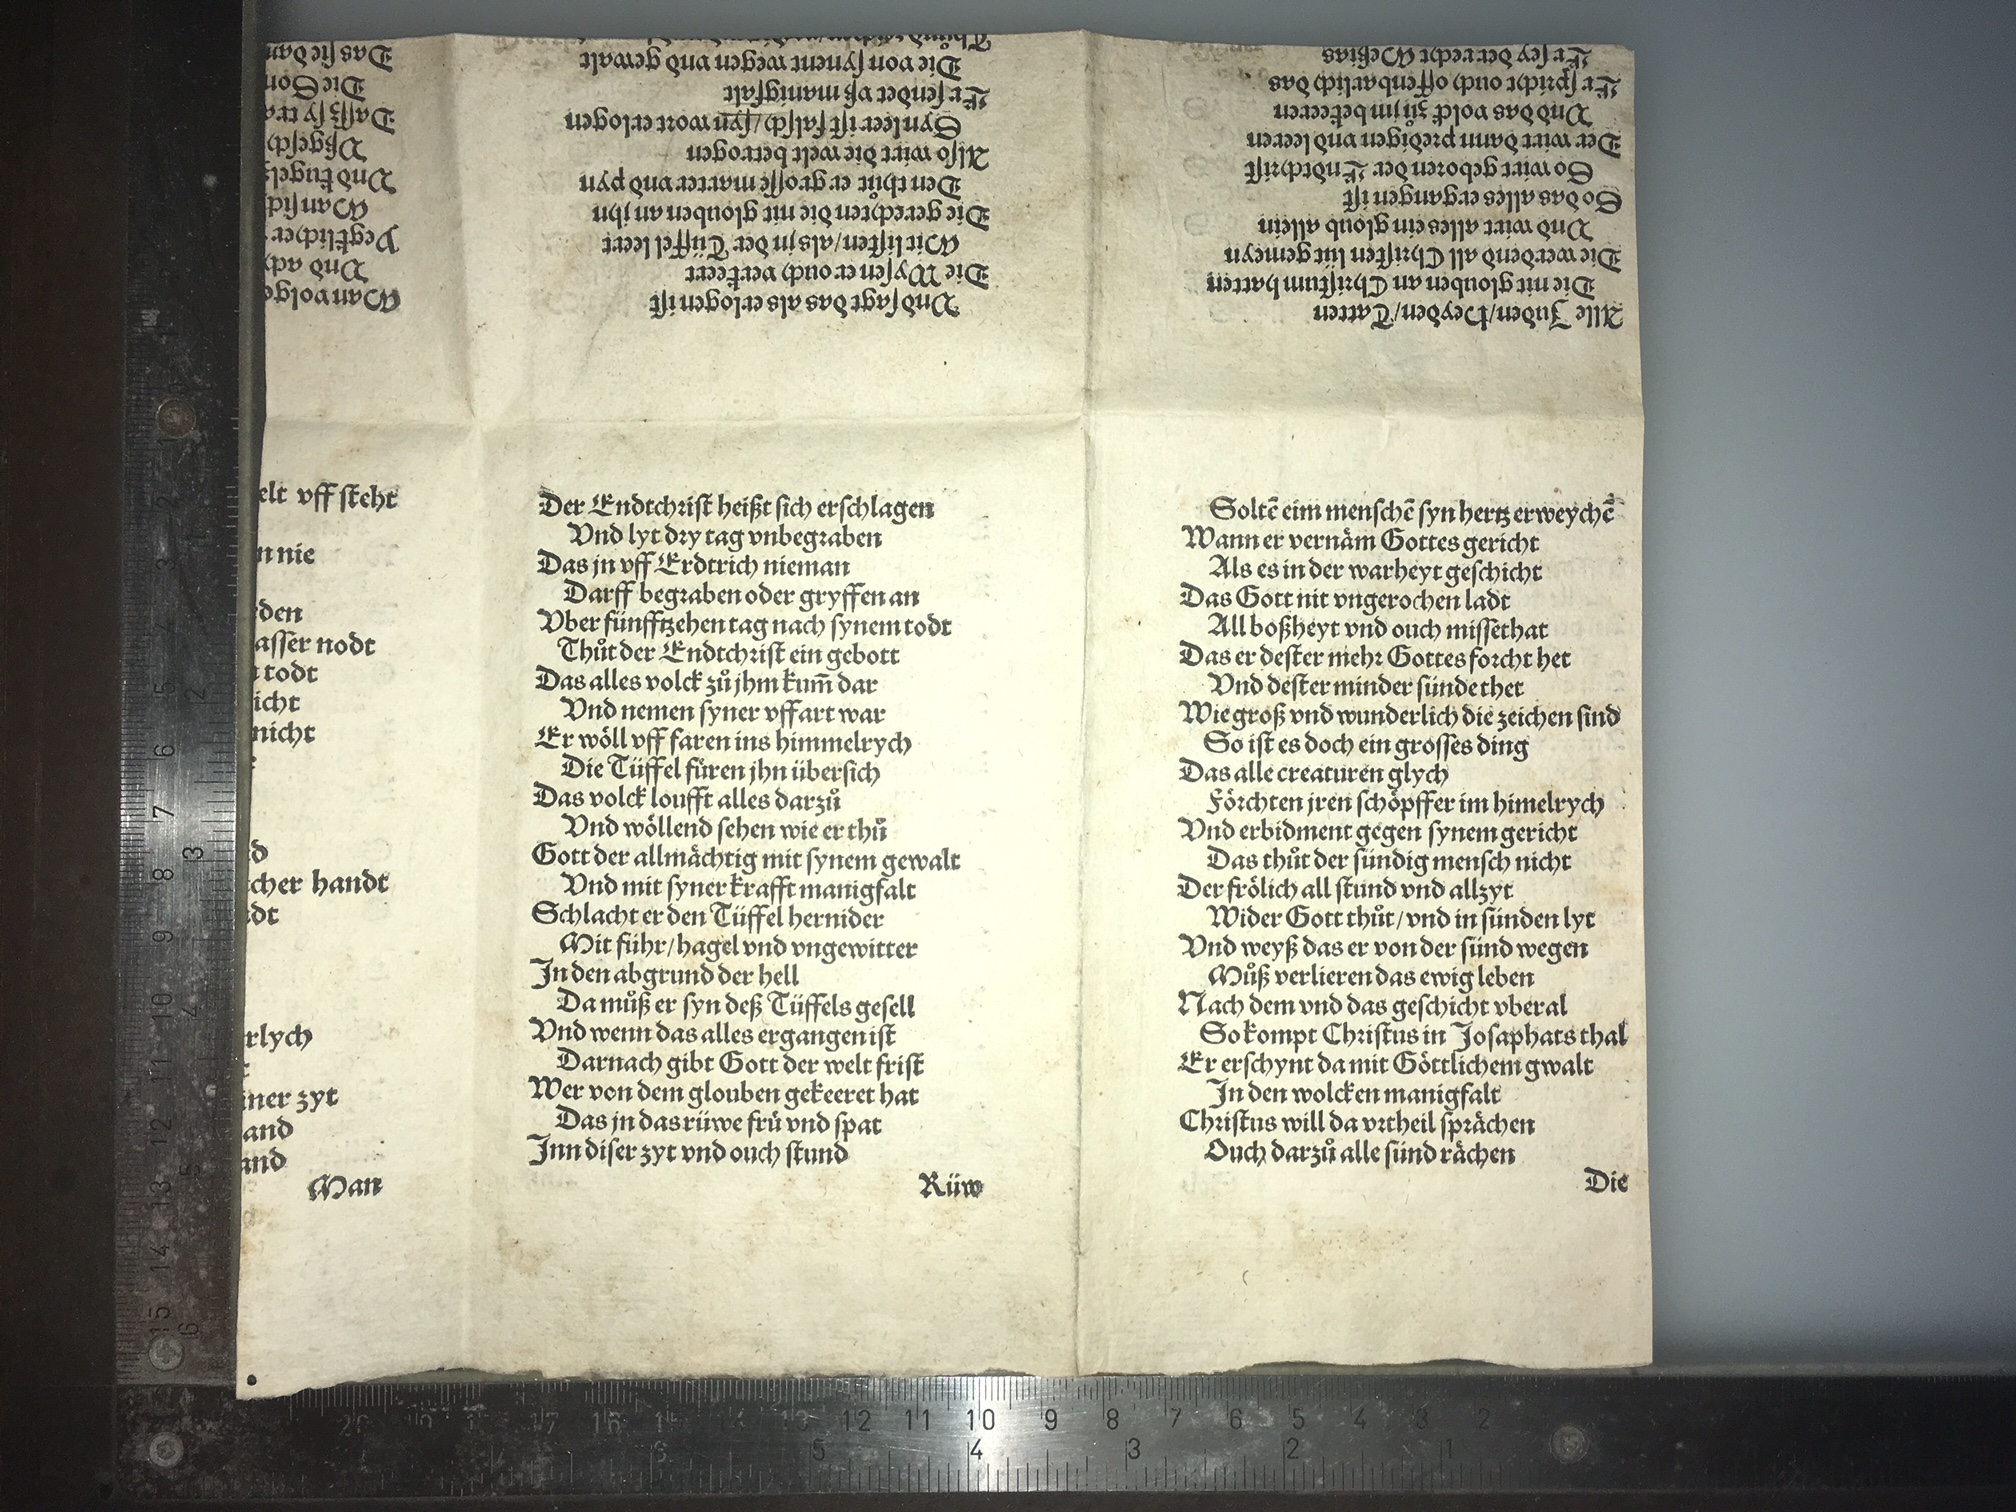 elt vff steht
n nie
den
asser nodt
todt
icht
nicht
d
cher handt
dt
rlych
iner zyt
and
and
Man
Der Endtchrist heißt sich erschlagen
Vnd lyt dry tag vnbegraben
Das jn vff Erdtrich nieman
Darff begraben oder gryffen an
Vber fünfftzehen tag nach synem todt
Thůt der Endtchrist ein gebott
Das alles volck zů jhm kum̃ dar
Vnd nemen syner vffart war
Er wöll vff faren ins himmelrych
Die Tüffel füren jhn übersich
Das volck loufft alles darzů
Vnd wöllend sehen wie er thů
Gott der allmächtig mit synem gewalt
Vnd mit syner krafft manigfalt
Schlacht er den Tüffel hernider
Mit führ/hagel vnd vngewitter
In den abgrund der hell
Da můß er syn deß Tüffels gesell
Vnd wenn das alles ergangen ist
Darnach gibt Gott der welt frist
Wer von dem glouben gekeeret hat
Das jn das rüwe frü vnd spat
Inn diser zyt vnd ouch stund
Rüw
Soltẽ eim menschẽ syn hertz erweychẽ
Wann er vernäm Gottes gericht
Als es in der warheyt geschicht
Das Gott nit vngerochen ladt
All boßheyt vnd ouch missethat
Das er dester mehr Gottes forcht het
Vnd dester minder sünde thet
Wie groß vnd wunderlich die zeichen sind
So ist es doch ein grosses ding
Das alle creaturen glych
Förchten jren schöpffer im himelrych
Vnd erbidment gegen synem gericht
Das thůt der sündig mensch nicht
Der frölich all stund vnd allzyt
Wider Gott thůt/vnd in sünden lyt
Vnd weyß das er von der sünd wegen
Můß verlieren das ewig leben
Nach dem vnd das geschicht vberal
So kompt Christus in Josaphats thal
Er erschynt da mit Göttlichem gwalt
In den wolcken manigfalt
Christus will da vrtheil sprächen
Ouch darzů alle sünd rächen
Die
Alle Juden/Heyden/Tatten
Die nit glouben an Christum hatten
Die werdend all Christen lüt gemeyn
Vnd wirt alles ein gloub allein
So das alles ergangen ist
So wirt geboren der Endtchrist
Der wirt dann predigen vnd leeren
Vnd das volck zů jm bekeeren
Er spricht ouch offenbarlich das
Er sey der recht Meßias
Vnd sagt das als erlogen ist
Die Wysen er ouch verkeert
Mit listen/als jn der Tüffel leert
Die gerechten die nit glouben an jhn
Den thůt er grosse marter vnd pyn
Also wirt die welt betrogen
Syn leer ist falsch/syn wort erlogen
Er sendet vß manigfalt
Die von synent wegen vnd gewalt
Man volg
Vnd ach
Yegklicher
Man sich
Vnd kugel
Vßgesch
Daß sy tra
Die Son
Das sie dan